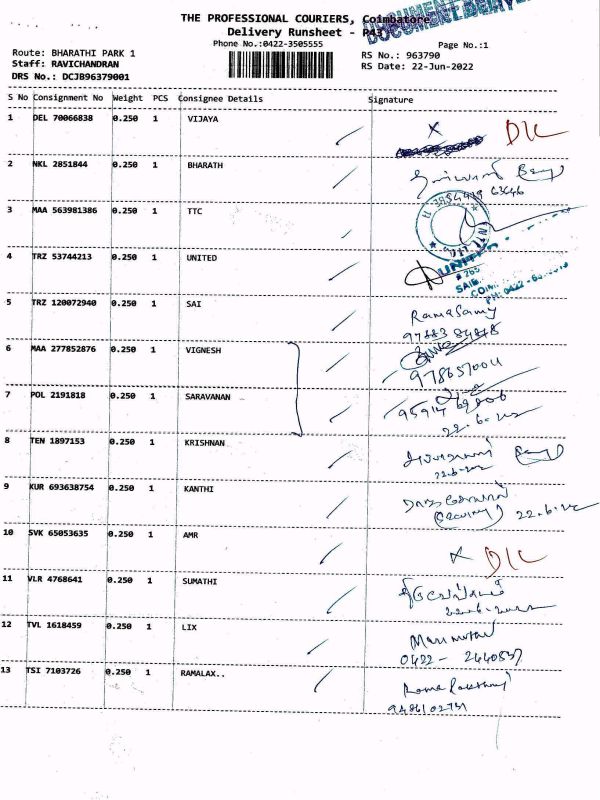 THE PROFESSIONAL COURIERS, Coimbatore
Delivery Runsheet - P43
Phone No.:0422-3505555
Page No.:1
Route: BHARATHI PARK 1
Staff: RAVICHANDRAN
DRS No.: DCJB96379001
RS No.: 963790
RS Date: 22-Jun-2022
S No Consignment No Weight PCS Consignee Details Signature
1 DEL 70066838 0.250 1 VIJAYA X
2 NKL 2851844 0.250 1 BHARATH
3 MAA 563981386 0.250 1 TTC
4 TRZ 53744213 0.250 1 UNITED
5 TRZ 120072940 0.250 1 SAI Ramasamy
6 MAA 277852876 0.250 1 VIGNESH
9786570011
7 POL 2191818 0.250 1 SARAVANAN
22.6.22
8 TEN 1897153 0.250 1 KRISHNAN
9 KUR 693638754 0.250 1 KANTHI
22.6.22
10 SVK 65053635 0.250 1 AMR X
11 VLR 4768641 0.250 1 SUMATHI
22.6.2022
12 TVL 1618459 0.250 1 LIX
0422-2440537
13 TSI 7103726 0.250 1 RAMALAX..
9486102751